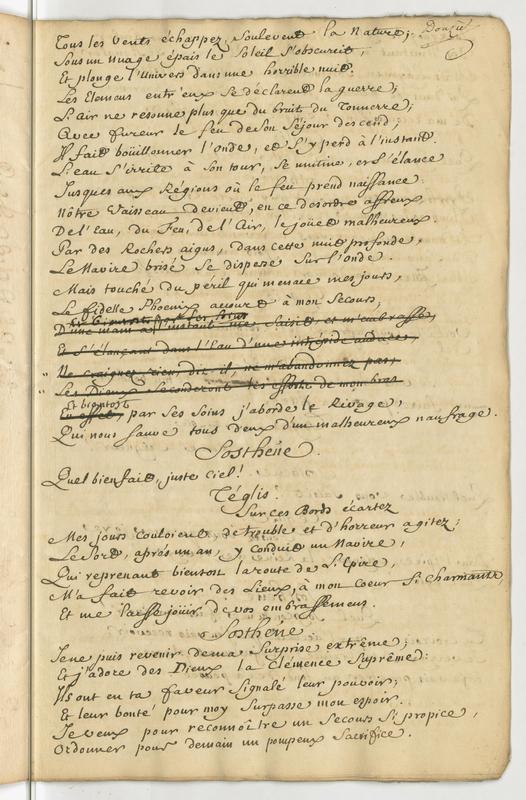 Tous les Vents échappez, Soulevent la Nature; Douziè
Sous un nuage épais le Soleil S'obscurcit,
Et plonge l'Univers dans une horrible nuit.
Les Elemens entr'eux se déclarent la guerre;
L'Air ne resonne plus que du bruit du Tonnerre;
Avec fureur le feu de son Séjour descend,
Il fait boüillonner l'onde, et S'y perd à l'instant.
L'eau S'irrite à son tour, Se mutine, et S'élance
Jusques aux Régions où le feu prend naissance.
Nôtre Vaisseau devient, en ce desordre affreux
De l'Eau, du Feu, de l'Air, le joüet malheureux.
Par des Rochers aigus, dans cette nuit profonde,
Le Navire brisé Se disperse Sur l'onde.
Mais touché du péril qui menace mes jours,
Le fidelle Phoenix accourt à mon Secours;
D'une main à l'instant me Saisit et m'embrasse,
Et S'élançant dans l'Eau d'une intrépide audace,
" Ne craignez rien, dit il, ne m'abandonnez pas,
" Les Dieux Seconderont les efforts de mon bras
Et bientost
En effet, par Ses Soins j'aborde le Rivage,
Qui nous Sauve tous deux d'un malheureux naufrage.
Sosthène.
Quel bienfait, juste Ciel!
Téglis.
Sur ces Bords écartez
Mes jours couloient de trouble et d'horreur agitez;
Le Sort, après un an, y conduit un Navire,
Qui reprenant bientost la route de l'Epire,
M'a fait revoir des Lieux, à mon Coeur Si charmants,
Et me laisse joüir de vos embrassemens.
Sosthène
Je ne puis revenir de ma Surprise extrême;
Et j'adore des Dieux la Clémence Suprême:
Ils ont en ta faveur Signalé leur pouvoir;
Et leur bonté pour moy Surpasse mon espoir.
Je veux pour reconnoître un Secours Si propice,
Ordonner pour demain un pompeux Sacrifice.